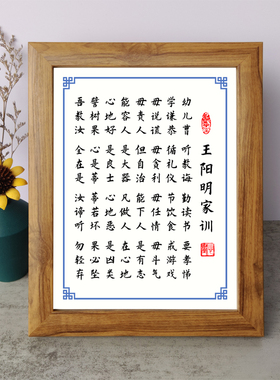 王阳明家训
幼儿曹 听教诲 勤读书 要孝悌
学谦恭 循礼仪 节饮食 戒游戏
毋说谎 毋贪利 毋任情 毋斗气
毋责人 但自治 能下人 是有志
能容人 是大器 凡做人 在心地
心地好 是良士 心地恶 是凶类
譬树果 心是蒂 蒂若坏 果必坠
吾教汝 全在是 汝谛听 勿轻弃